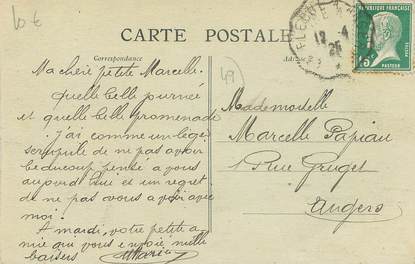 10 €
CARTE POSTALE
Correspondance
49
RÉPUBLIQUE FRANÇAISE
15
PASTEUR
POSTES
12 - 4
26
Ma chère petite Marcelle.
Quelle belle journée
et quelle belle promenade
J'ai comme un léger
scrupule de ne pas avoir
beaucoup pensé a vous
aujourd'hui et un regret
de ne pas vous avoir avec
moi.
A mardi, votre petite a-
mie qui vous envoie mille
baisers
Mademoiselle
Marcelle Papiau
Rue Gruget
Angers